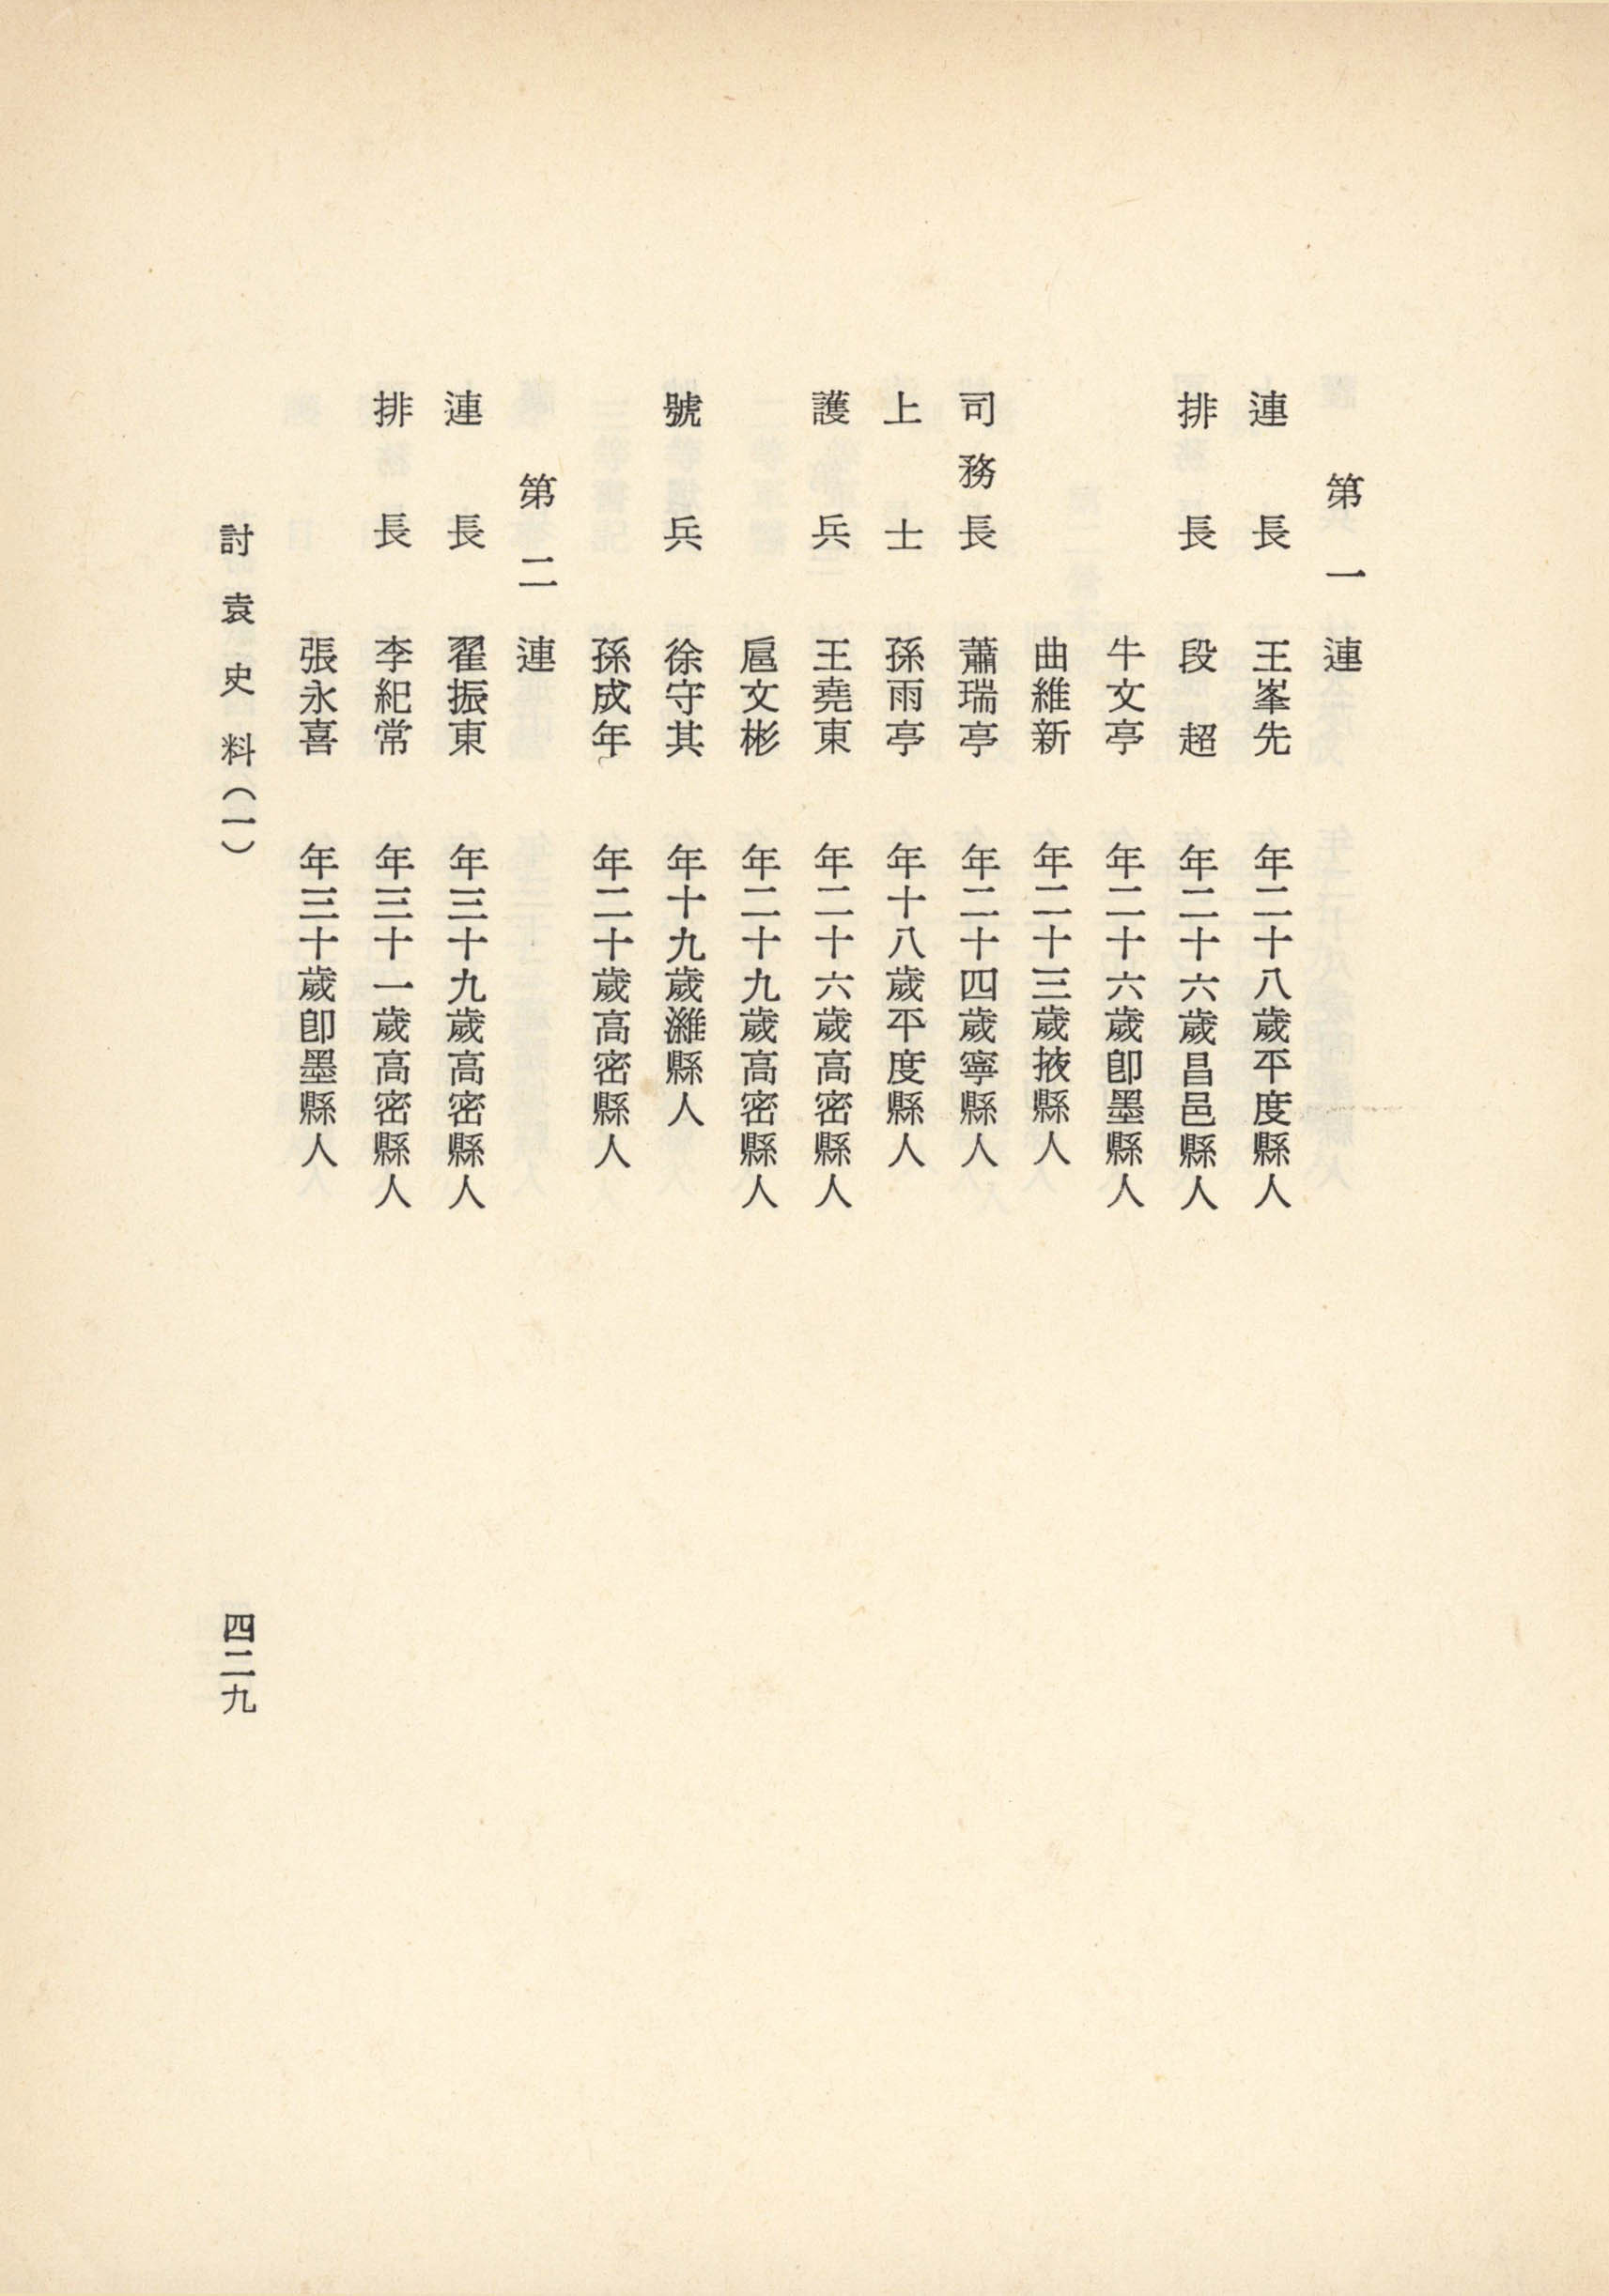 第一連
連長　王峯先　年二十八歲平度縣人
排長　段超　年二十六歲昌邑縣人
牛文亭　年二十六歲卽墨縣人
曲維新　年二十三歲掖縣人
司務長　蕭瑞亭　年二十四歲寧縣人
上士　孫雨亭　年十八歲平度縣人
護兵　王堯東　年二十六歲高密縣人
扈文彬　年二十九歲高密縣人
號兵　徐守其　年十九歲濰縣人
孫成年　年二十歲高密縣人
第二連
連長　翟振東　年三十九歲高密縣人
排長　李紀常　年三十一歲高密縣人
張永喜　年三十歲卽墨縣人
討袁史料（一）
四二九